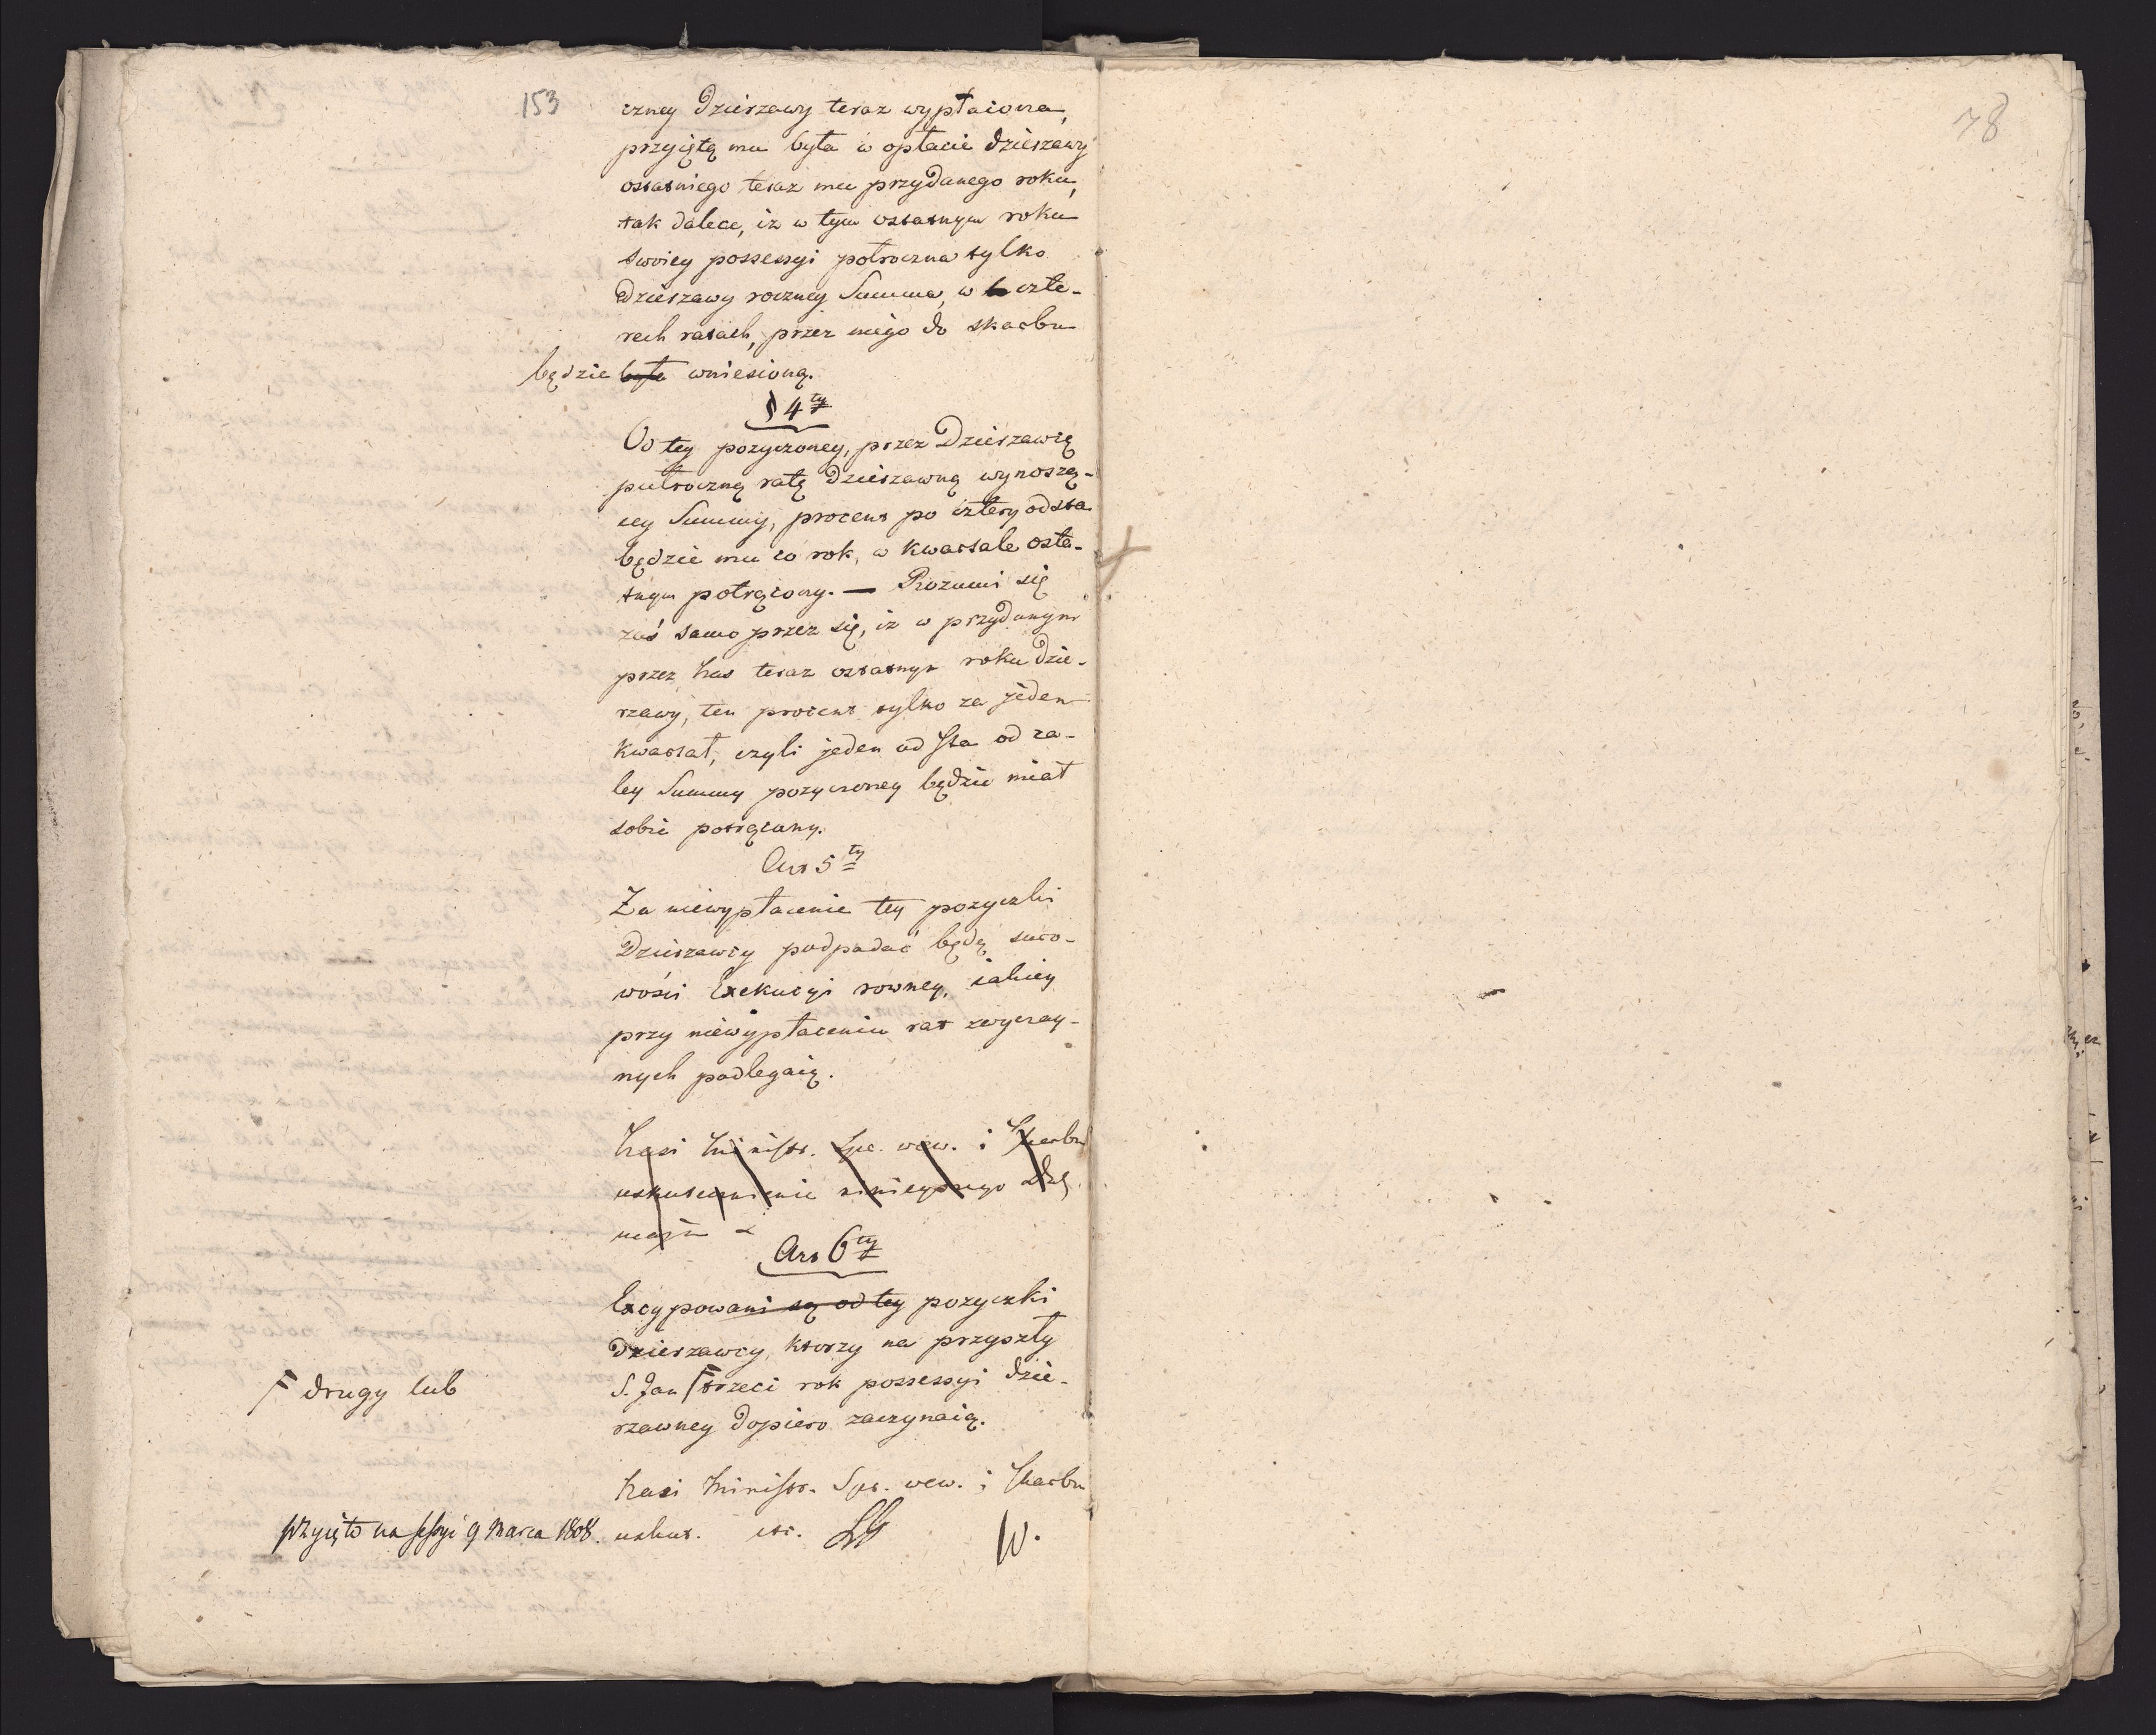 153
czney Dzierzawy teraz wypłacona,
przyiętą mu była w opłacie dzierzawy
ostatniego teraz mu przydanego roku,
tak dalece, iz w tym ostatnym roku
swoiey possessyi połroczna tylko
dzierzawy roczney Summa, w czte-
rech ratach, przez niego do skarbu
będzie była wniesioną.
§ 4ty
Od tey pozyczoney, przez Dzierzawcę
pułroczną ratę dzierzawną wynoszą-
cey Summy, procent po cztery od sta
będzie mu co rok, w kwartale osta-
tnym potrącony. — Rozumi się
zaś samo przez się, iz w przydanym
przez Nas teraz ostatnym roku dzie-
rzawy, ten procent tylko za jeden
kwartał, czyli jeden od sta od ca-
ley Summy pozyczoney będzie miał
sobie potrącony.
Art 5ty
Za niewypłacenie tey pozyczki
Dzierzawcy podpadać będą suro-
wości Exekucyi rowney, iakiey
przy niewypłaceniu rat zwyczay-
nych podlegaią.
Nasi Ministr. Spr. wew. i Skarbu
uskutecznienie ninieyszego Dek
maią
Art 6ty
Excypowani są od tey pozyczki
dzierzawcy, ktorzy na przyszły
S. Jan trzeci rok possessyi dzie-
rzawney dopiero zaczynaią.
drugy lub
Nasi Ministr. Spr. wew. i Skarbu
uskut. etc.
przyięto na sessyi 9 Marca 1808.
W.
78